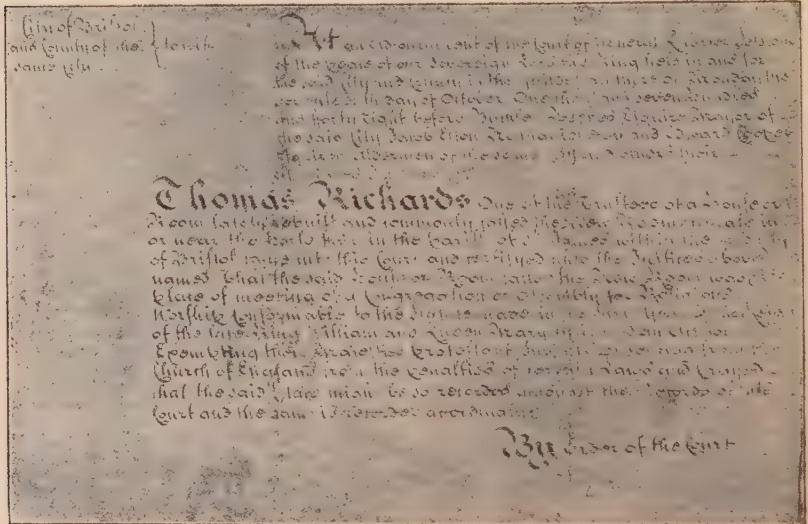 City of Bristol
and County of the } to wit
same City
At an adjournment of the Court of General Quarter Sessions
of the Peace of our Sovereign Lord the King held in and for
the said City and County in the Guildhall there on Thursday the
day of October One thousand seven hundred
and forty eight before Esquire Mayor of
the said City Jacob Elton and Edward Cooper
Esquires Aldermen of the same City and others their
Thomas Richards One of the Trustees of a House or
Room lately rebuilt and commonly called the New Room situate in
or near the Horse Fair in the Parish of St James within the City
of Bristol came into this Court and certifyed unto the Justices above
named That the said House or Room called the New Room was a
Place of meeting of a Congregation or Assembly for Religious
Worship Conformable to the Statute made in the
of the late King William and Queen Mary for
Exempting their Majesties Protestant Subjects Dissenting from the
Church of England from the Penalties of certain Laws and prayed
that the said Place might be so recorded amongst the Records of this
Court and the same is recorded accordingly
By order of the Court